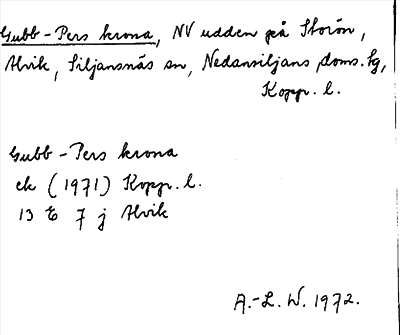 Gubb-Pers krona, NV udden på Storön,
Alvik, Siljansnäs sn, Nedansiljans doms. hg,
Kopp. l.
Gubb-Pers krona
ek (1971) Kopp. l.
13 E 7 j Alvik
A.-L. W. 1972.